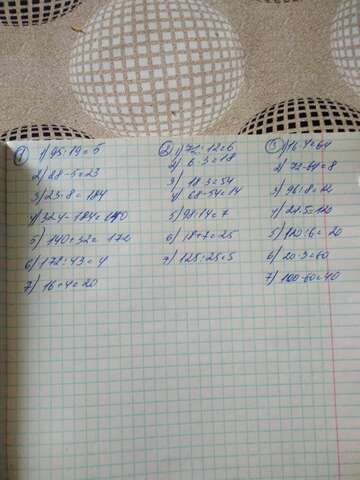 ① 1) 95:19=5
2) 28-5=23
3) 23·8=184
4) 324-184=140
5) 140+32=172
6) 172:43=4
7) 16+4=20
② 1) 72:12=6
2) 6·3=18
3) 18·3=54
4) 68-54=14
5) 98:14=7
6) 18+7=25
7) 125:25=5
③ 1) 16·4=64
2) 72-64=8
3) 96:8=12
4) 24·5=120
5) 120:6=20
6) 20·3=60
7) 100-60=40